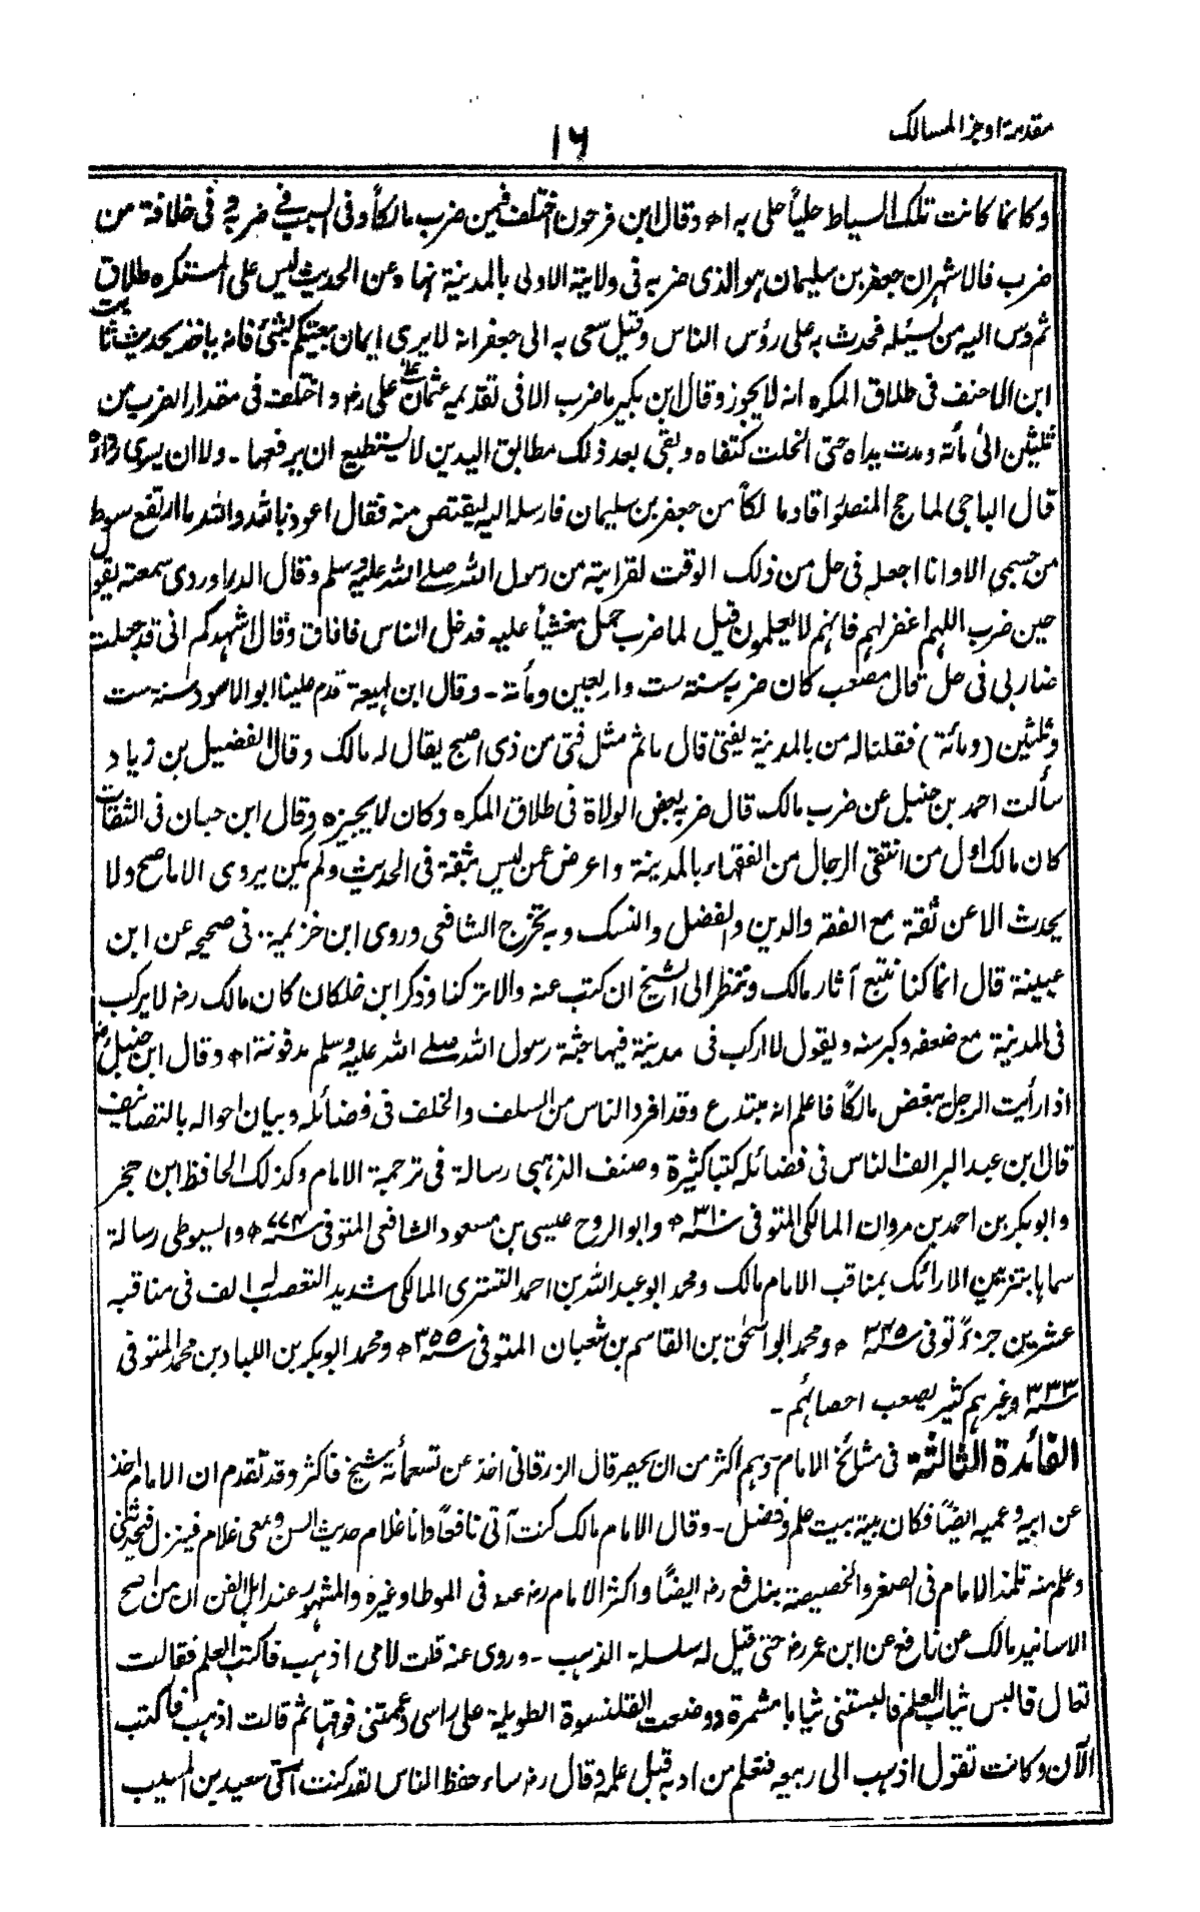 مقدمة اوجز المسالك
١٦
وكانما كانت تلك السياط حلياً حلى به اه وقال ابن فرحون اختلف فيمن ضرب مالكاً وفى السبب فى ضربه و فى خلافة من
ضرب فالاشهر ان جعفر بن سليمان هو الذى ضربه فى ولاية الاولى بالمدينة نهاه عن الحديث ليس على المستكره طلاق
ثم دس اليه من يسئله فحدث به على رؤس الناس وقيل سعى به الى جعفر انه لا يرى ايمان بيعتكم بشئ فانه ياخذ بحديث ثابت
ابن الاحنف فى طلاق المكره انه لا يجوز وقال ابن بكير ما ضرب الا فى تقديمه عثمان على على رض و اختلف فى مقدار الضرب من
ثلثين الى مأئة ومدت يداه حتى انحلت كتفاه وبقى بعد ذلك مطابق اليدين لا يستطيع ان يرفعهما - ولا ان يسوى رداءه
قال الباجى لما حج المنصور اقاد مالكاً من جعفر بن سليمان فارسله اليه ليقتص منه فقال اعوذ بالله والله ما ارتفع سوط
من جسمى الا وانا اجعله فى حل من ذلك الوقت لقرابته من رسول الله صلى الله عليه وسلم وقال الدراوردى سمعته يقول
حين ضرب اللهم اغفر لهم فانهم لا يعلمون قيل لما ضرب حمل مغشياً عليه فدخل الناس فافاق وقال اشهدكم انى قد جعلت
ضاربى فى حل قال مصعب كان ضربه سنة ست واربعين ومأة - وقال ابن لهيعة قدم علينا ابو الاسود سنة ست
وثلثين (ومائة) فقلنا له من بالمدينة يفتى قال ما ثم مثل فتى من ذى اصبح يقال له مالك وقال الفضيل بن زياد
سألت احمد بن حنبل عن ضرب مالك قال ضربه بعض الولاة فى طلاق المكره وكان لا يجيزه وقال ابن حبان فى الثقات
كان مالك اول من انتقى الرجال من الفقهاء بالمدينة واعرض عمن ليس بثقة فى الحديث ولم يكن يروى الا ما صح ولا
يحدث الا عن ثقة مع الفقه والدين والفضل والنسك وبه تخرج الشافعى وروى ابن خزيمة فى صحيحه عن ابن
عيينة قال انما كنا نتبع آثار مالك وننظر الى الشيخ ان كتب عنه والا تركنا وذكر ابن خلكان كان مالك رض لا يركب
فى المدينة مع ضعفه وكبر سنه ويقول لا اركب فى مدينة فيها جثة رسول الله صلى الله عليه وسلم مدفونة اه وقال ابن حنبل رض
اذا رأيت الرجل يبغض مالكاً فاعلم انه مبتدع وقد افرد الناس من السلف والخلف فى فضائله وبيان احواله بالتصانيف
قال ابن عبد البر الف الناس فى فضائله كتبا كثيرة وصنف الذهبى رسالة فى ترجمة الامام وكذلك الحافظ ابن حجر
وابو بكر بن احمد بن مروان المالكى المتوفى سنة ٣١٠ه وابو الروح عيسى بن مسعود الشافعى المتوفى سنة ٧٧٤ه والسيوطى رسالة
سماها بتزيين الارائك بمناقب الامام مالك ومحمد ابو عبد الله بن احمد التسترى المالكى شديد التعصب له الف فى مناقبه
عشرين جزءً توفى سنة ٣٤٥ه ومحمد ابو اسحٰق بن القاسم بن شعبان المتوفى سنة ٣٥٥ه ومحمد ابو بكر بن اللباد بن محمد المتوفى
سنة ٣٣٣ وغيرهم كثير يصعب احصائهم -
الفائدة الثالثة فى مشائخ الامام وهم اكثر من ان يحصر قال الزرقانى اخذ عن تسعمأئة شيخ فاكثر وقد تقدم ان الامام اخذ
عن ابيه وعميه ايضاً فكان بيته بيت علم وفضل - وقال الامام مالك كنت آتى نافعاً وانا غلام حديث السن ومعى غلام فينزل فيحدثنى
وعلم منه تلمذ الامام فى الصغر والخصيصة بنافع رض ايضاً واكثر الامام رض عنه فى الموطا وغيره والمشهور عند اهل الفن ان من اصح
الاسانيد مالك عن نافع عن ابن عمر رض حتى قيل له سلسلة الذهب - وروى عنه قلت لامى اذهب فاكتب العلم فقالت
تعال فالبس ثياب العلم فالبستنى ثيابا مشمرة ووضعت القلنسوة الطويلة على راسى وعممتنى فوقها ثم قالت اذهب فاكتب
الآن وكانت تقول اذهب الى ربيعه فتعلم من ادبه قبل علمه وقال رض ساء حفظ الناس لقد كنت آتى سعيد بن المسيب